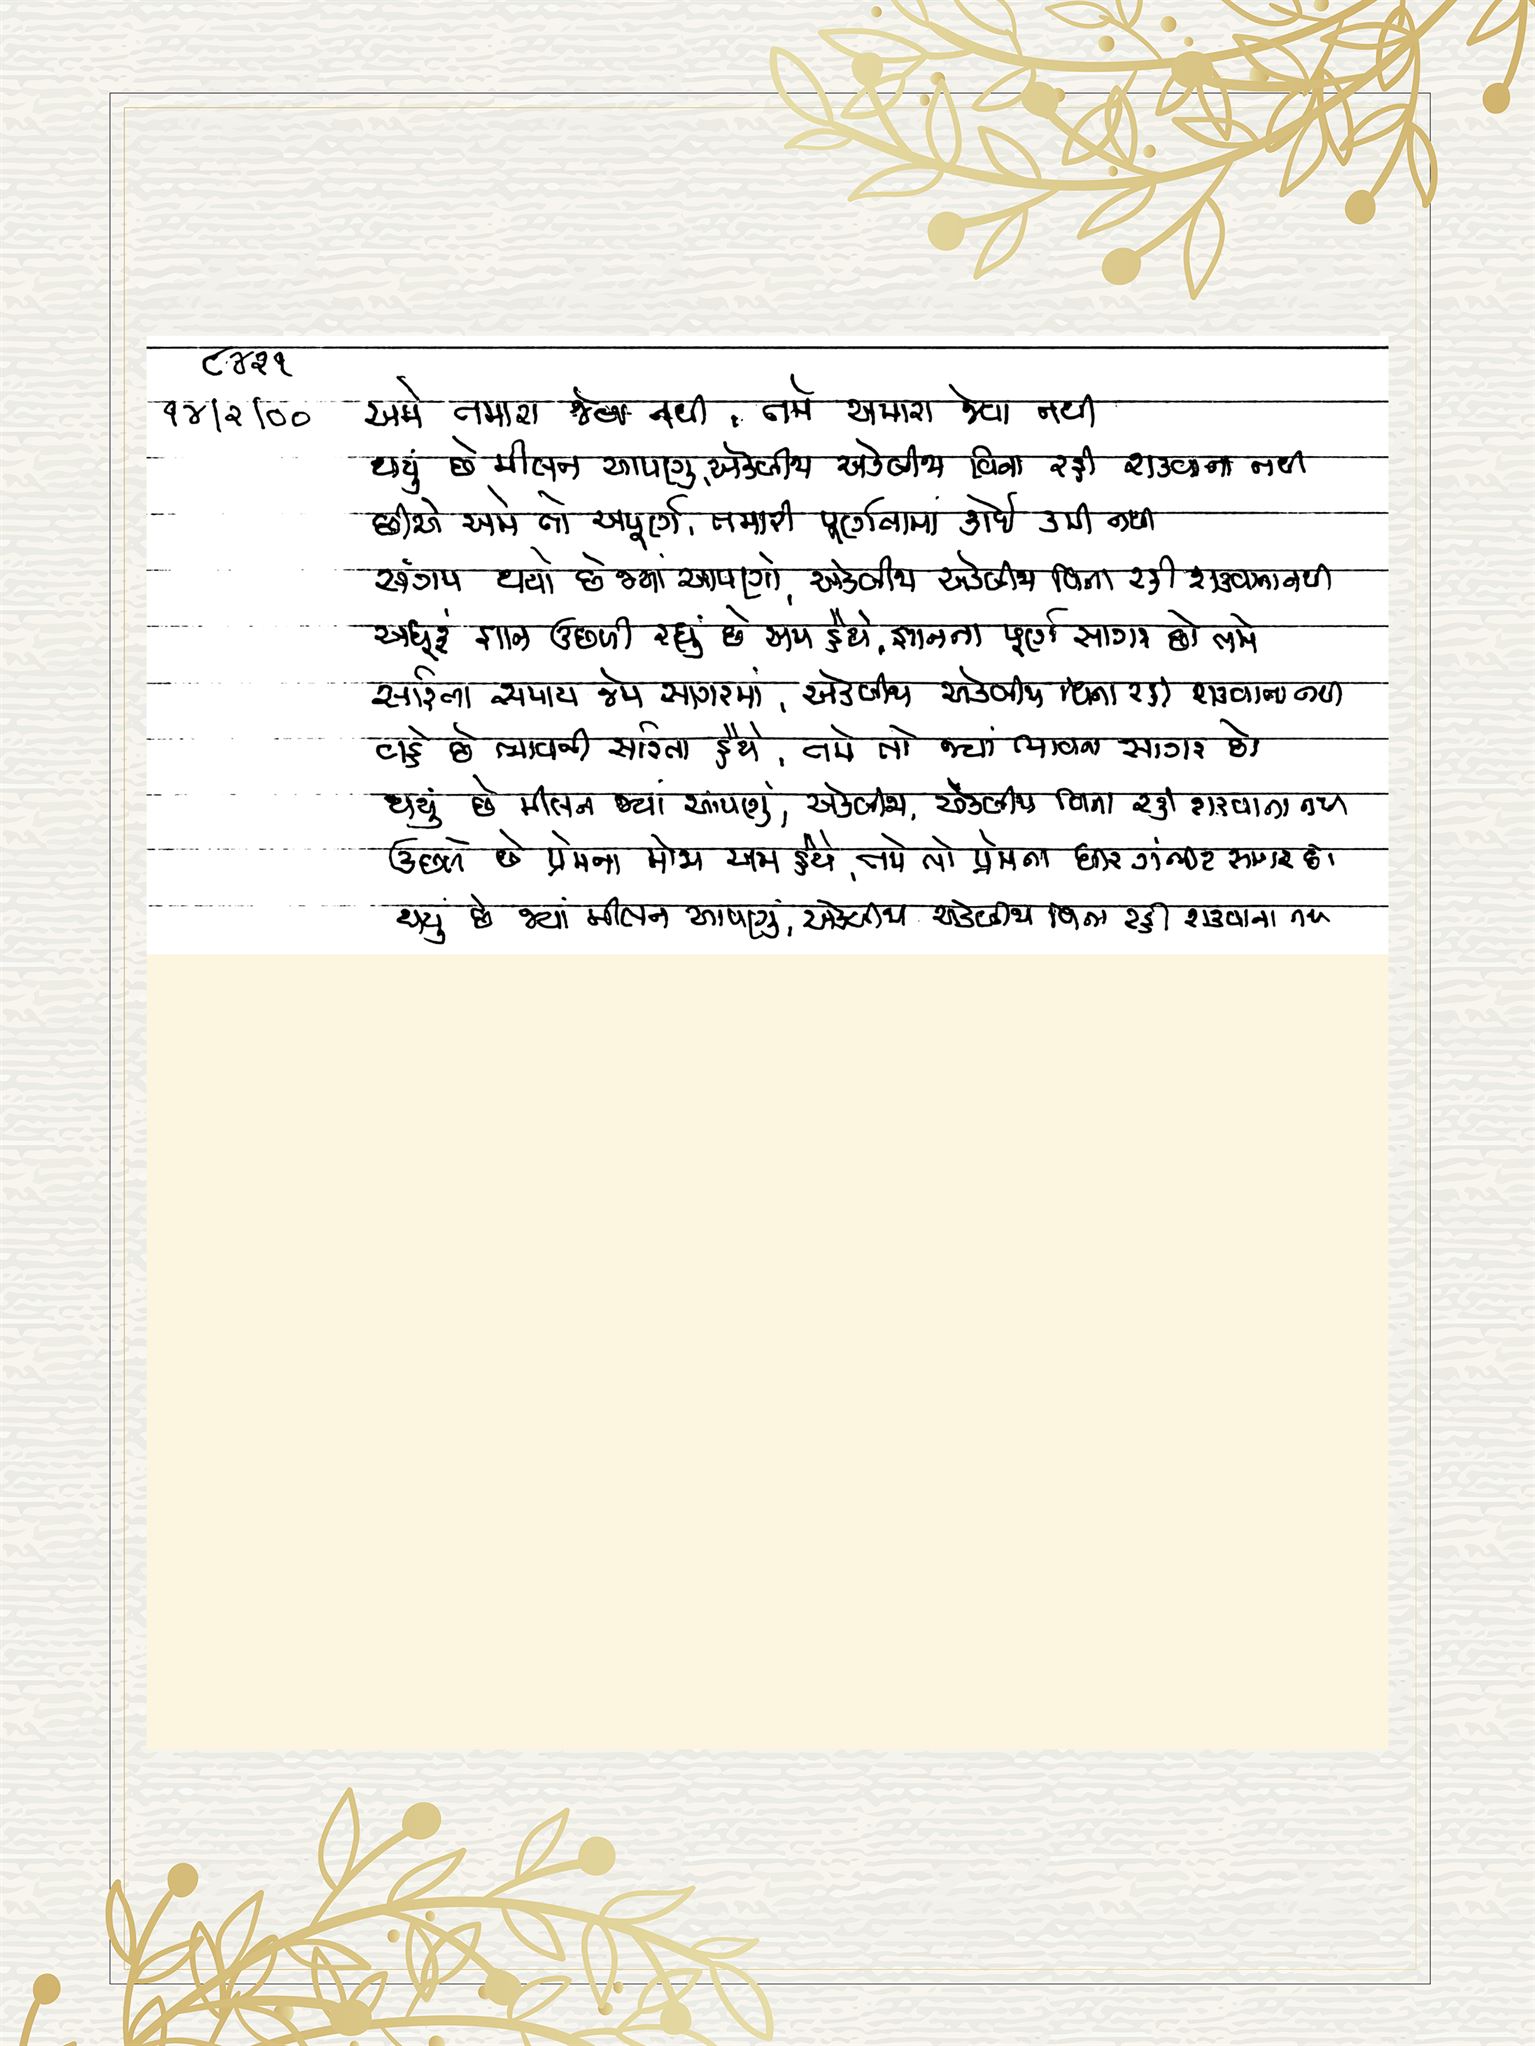 ૮૪૨૧
૧૪/૨/૦૦ અમે તમારા જેવા નથી, તમે અમારા જેવા નથી
થયું છે મીલન આપણુ, એકબીજા એકબીજા વિના રહી શકવાના નથી
છીએ અમે તો અપૂર્ણ, તમારી પૂર્ણતામાં કોઈ કમી નથી
સંગમ થયો છે જ્યાં આપણો, એકબીજા એકબીજા વિના રહી શકવાના નથી
અધૂરું જ્ઞાન ઉછળી રહ્યું છે અમ હૈયે, જ્ઞાનના પૂર્ણ સાગર છો તમે
સરિતા સમાય જેમ સાગરમાં, એકબીજા એકબીજા વિના રહી શકવાના નથી
વહે છે ભાવની સરિતા હૈયે, તમે તો જ્યાં ભાવના સાગર છો
થયું છે મીલન જ્યાં આપણું, એકબીજા, એકબીજા વિના રહી શકવાના નથી
ઉછળે છે પ્રેમના મોજા અમ હૈયે, તમે તો પ્રેમના ધીર ગંભીર સાગર છો
થયું છે જ્યાં મીલન આપણું, એકબીજા એકબીજા વિના રહી શકવાના નથી